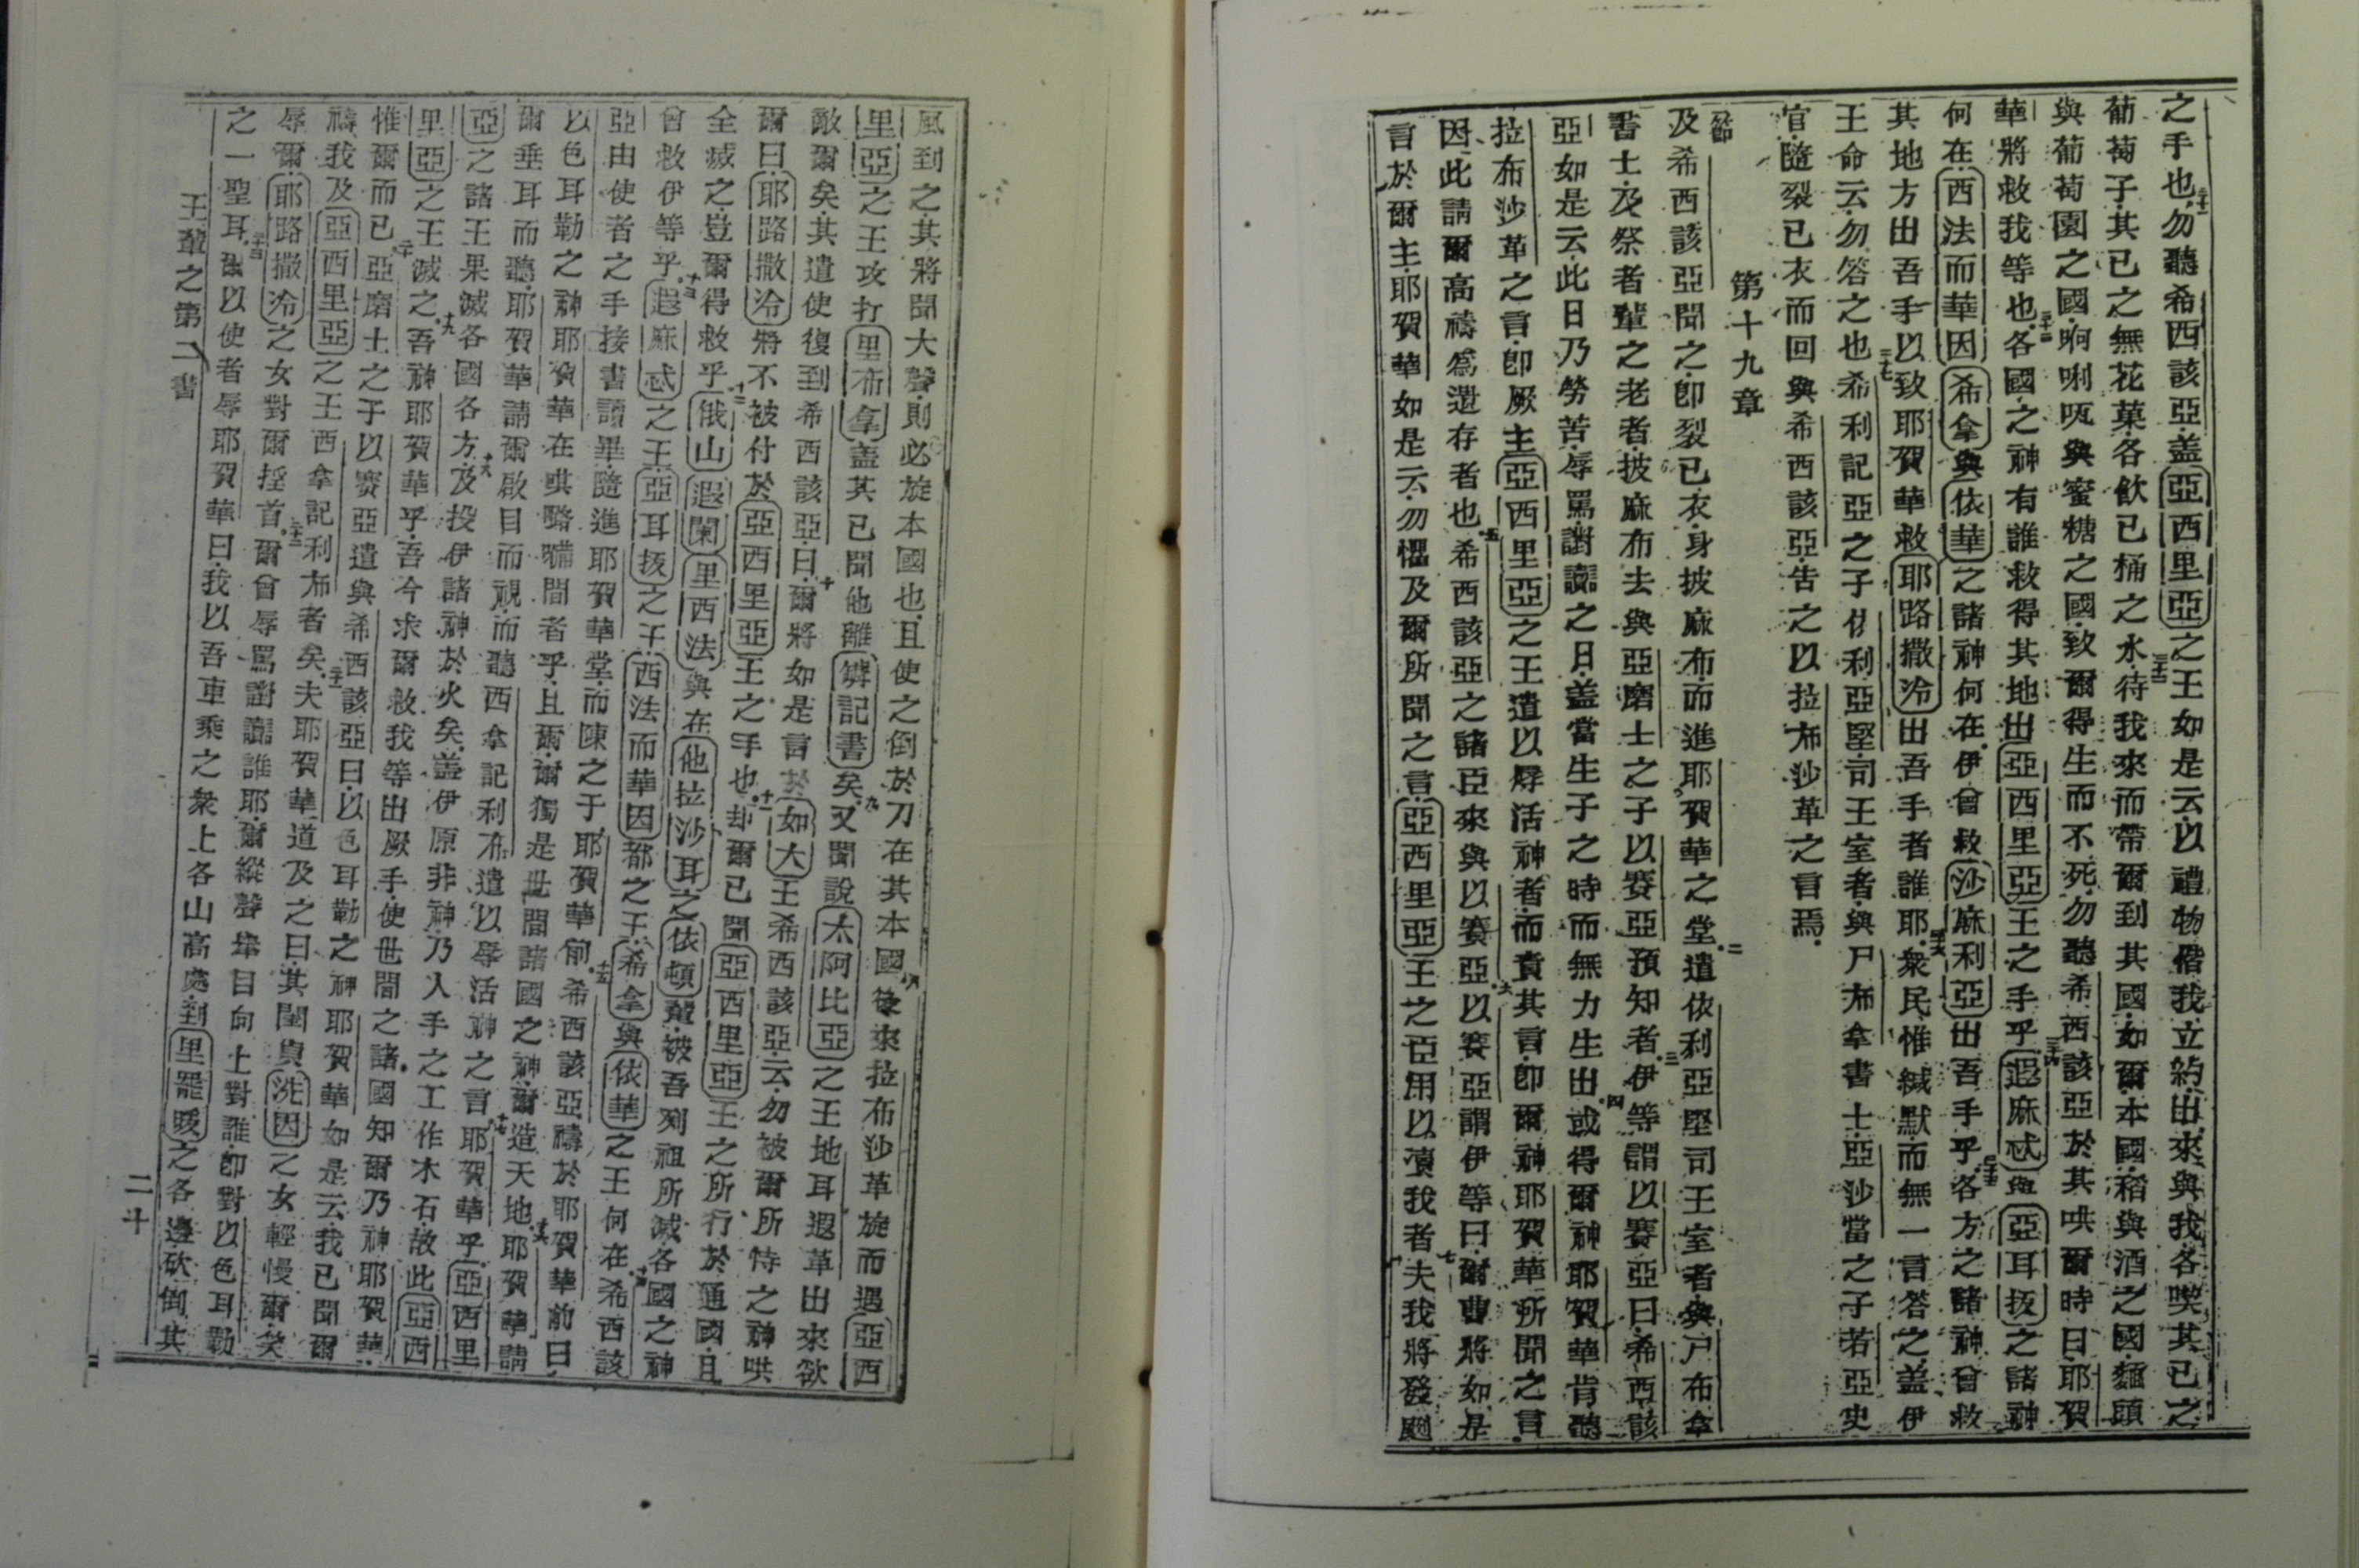 之手也勿聽希西該亞盖亞西里亞之王如是云以禮物偕我立約出來與我各喫其已之
葡萄子其已之無花菓各飲已桶之水待我來而帶爾到其國如爾本國稻與酒之國麵頭
與葡萄園之國與蜜糖之國致爾得生而不死勿聽希西該亞於其哄爾時曰耶賀
華將救我等也各國之神有誰救得其地出亞西里亞王之手乎遐麻忒與亞耳抜之諸神
何在西法而華因希拿與依華之諸神何在伊曾救沙麻利亞出吾手乎各方之諸神曾救
其地方出吾手以致耶賀華救耶路撒冷出吾手者誰耶衆民惟緘默而無一言答之盖伊
王命云勿答之也希利記亞之子依利亞堅司王室者與尸布拿書士亞沙當之子若亞史
官隨裂已衣而回與希西該亞告之以拉布沙革之言焉
第十九章
及希西該亞聞之即裂已衣身披麻布而進耶賀華之堂二遣依利亞堅司王室者與尸布拿
書士及祭者輩之老者披麻布去與亞磨士之子以賽亞預知者三伊等謂以賽亞曰希西該
亞如是云此日乃勞苦辱罵謝讟之日盖當生子之時而無力生出四或得爾神耶賀華肯聽
拉布沙革之言即厥主亞西里亞之王遣以辱活神者而責其言即爾神耶賀華所聞之言
因此請爾高禱爲遺存者也五希西該亞之諸臣來與以賽亞六以賽亞謂伊等曰爾曹將如是
言於爾主耶賀華如是云勿懼及爾所聞之言亞西里亞王之臣用以瀆我者七夫我將發颶
風到之其將聞大聲則必旋本國也且使之倒於刀在其本國八後來拉布沙革旋而遇亞西
里亞之王攻打里布拿盖其已聞他離記書矣九又聞說太阿比亞之王地耳遐革出來欲
敵爾矣其遣使復到希西該亞曰十爾將如是言於如大王希西該亞云勿被爾所恃之神哄
爾曰耶路撒冷將不被付於亞西里亞王之手也十一却爾已聞亞西里亞王之所行於通國且
全滅之豈爾得救乎十二俄山遐闌里西法與在他拉沙耳之依頓輩被吾列祖所滅各國之神
曾救伊等乎十三遐麻忒之王亞耳抜之王西法而華因都之王希拿與依華之王何在十四希西該
亞由使者之手接書讀畢隨進耶賀華堂而陳之于耶賀華前十五希西該亞禱於耶賀華前曰
以色耳勒之神耶賀華在間者乎且爾爾獨是世間諸國之神爾造天地十六耶賀華請
爾垂耳而聽耶賀華請爾啟目而視而聽西拿記利布遣以辱活神之言十七耶賀華乎亞西里
亞之諸王果滅各國各方十八及投伊諸神於火矣盖伊原非神乃人手之工作木石故此亞西
里亞之王滅之十九吾神耶賀華乎吾今求爾救我等出厥手使世間之諸國知爾乃神耶賀華
惟爾而已二十亞磨士之子以賽亞遣與希西該亞曰以色耳勒之神耶賀華如是云我已聞爾
禱我及亞西里亞之王西拿記利布者矣二十一夫耶賀華道及之曰其閨貞洗因之女輕慢爾矣
辱爾耶路撒冷之女對爾搖首二十二爾曾辱罵謝讟誰耶爾縱聲舉目向上對誰即對以色耳勒
之一聖耳二十三爾以使者辱耶賀華曰我以吾車乘之衆上各山高處到里罷暖之各邊砍倒其
王輩之第二書
二十